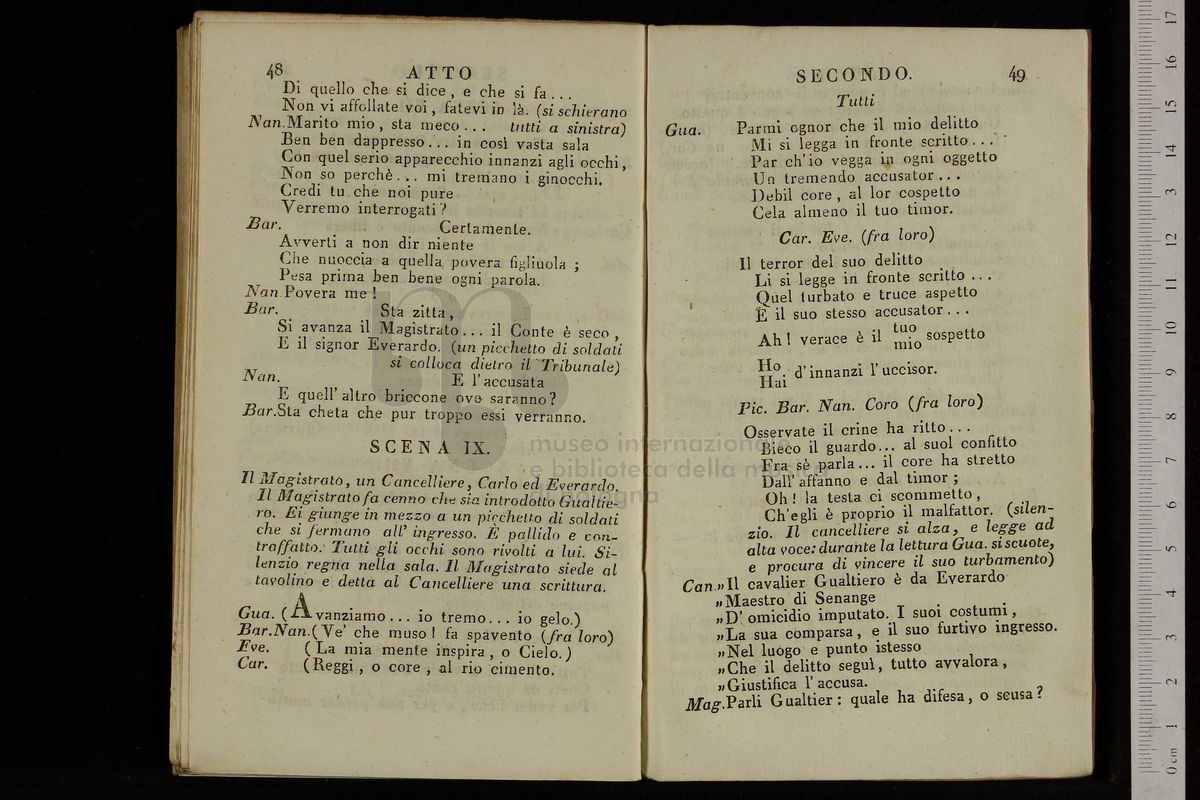 48 ATTO
Di quello che si dice, e che si fa...
Non vi affollate voi, fatevi in là. (si schierano
Nan.Marito mio, sta meco... tutti a sinistra)
Ben ben dappresso... in così vasta sala
Con quel serio apparecchio innanzi agli occhi,
Non so perchè... mi tremano i ginocchi.
Credi tu che noi pure
Verremo interrogati?
Bar. Certamente.
Avverti a non dir niente
Che nuoccia a quella povera figliuola;
Pesa prima ben bene ogni parola.
Nan Povera me!
Bar. Sta zitta,
Si avanza il Magistrato... il Conte è seco,
E il signor Everardo. (un picchetto di soldati
si colloca dietro il Tribunale)
Nan. E l'accusata
E quell'altro briccone ove saranno?
Bar.Sta cheta che pur troppo essi verranno.
SCENA IX.
Il Magistrato, un Cancelliere, Carlo ed Everardo.
Il Magistrato fa cenno che sia introdotto Gualtie-
ro. Ei giunge in mezzo a un picchetto di soldati
che si fermano all'ingresso. È pallido e con-
traffatto. Tutti gli occhi sono rivolti a lui. Si-
lenzio regna nella sala. Il Magistrato siede al
tavolino e detta al Cancelliere una scrittura.
Gua. (Avanziamo... io tremo... io gelo.)
Bar.Nan.(Ve' che muso! fa spavento (fra loro)
Eve. (La mia mente inspira, o Cielo.)
Car. (Reggi, o core, al rio cimento.
SECONDO. 49
Tutti
Gua. Parmi ognor che il mio delitto
Mi si legga in fronte scritto...
Par ch'io vegga in ogni oggetto
Un tremendo accusator...
Debil core, al lor cospetto
Cela almeno il tuo timor.
Car. Eve. (fra loro)
Il terror del suo delitto
Li si legge in fronte scritto...
Quel turbato e truce aspetto
È il suo stesso accusator...
Ah! verace è il tuo sospetto
mio
Ho d'innanzi l'uccisor.
Hai
Pic. Bar. Nan. Coro (fra loro)
Osservate il crine ha ritto...
Bieco il guardo... al suol confitto
Fra sè parla... il core ha stretto
Dall'affanno e dal timor;
Oh! la testa ci scommetto,
Ch'egli è proprio il malfattor. (silen-
zio. Il cancelliere si alza, e legge ad
alta voce: durante la lettura Gua. si scuote,
e procura di vincere il suo turbamento)
Can.»Il cavalier Gualtiero è da Everardo
»Maestro di Senange
»D'omicidio imputato. I suoi costumi,
»La sua comparsa, e il suo furtivo ingresso.
»Nel luogo e punto istesso
»Che il delitto seguì, tutto avvalora,
»Giustifica l'accusa.
Mag.Parli Gualtier: quale ha difesa, o scusa?
museo internazionale
e biblioteca della musica